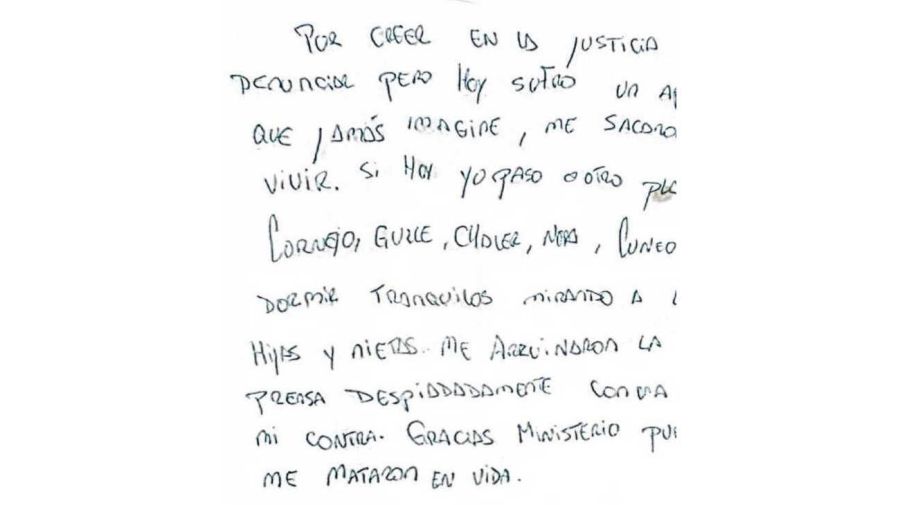 POR CREER EN LA JUSTICIA
DENUNCIAR PERO HOY SUFRO UN
QUE JAMÁS IMAGINE, ME SACARO
VIVIR. SI HOY YO PASO O OTRO
CORNEJO, GURLE, CHOLER, NORA, CUNEO
DORMIR TRANQUILOS MIRANDO A
HIJAS Y NIETAS. ME ARRUINARON LA
PRENSA DESPIADADAMENTE
MI CONTRA. GRACIAS MINISTERIO PU
ME MATARON EN VIDA.